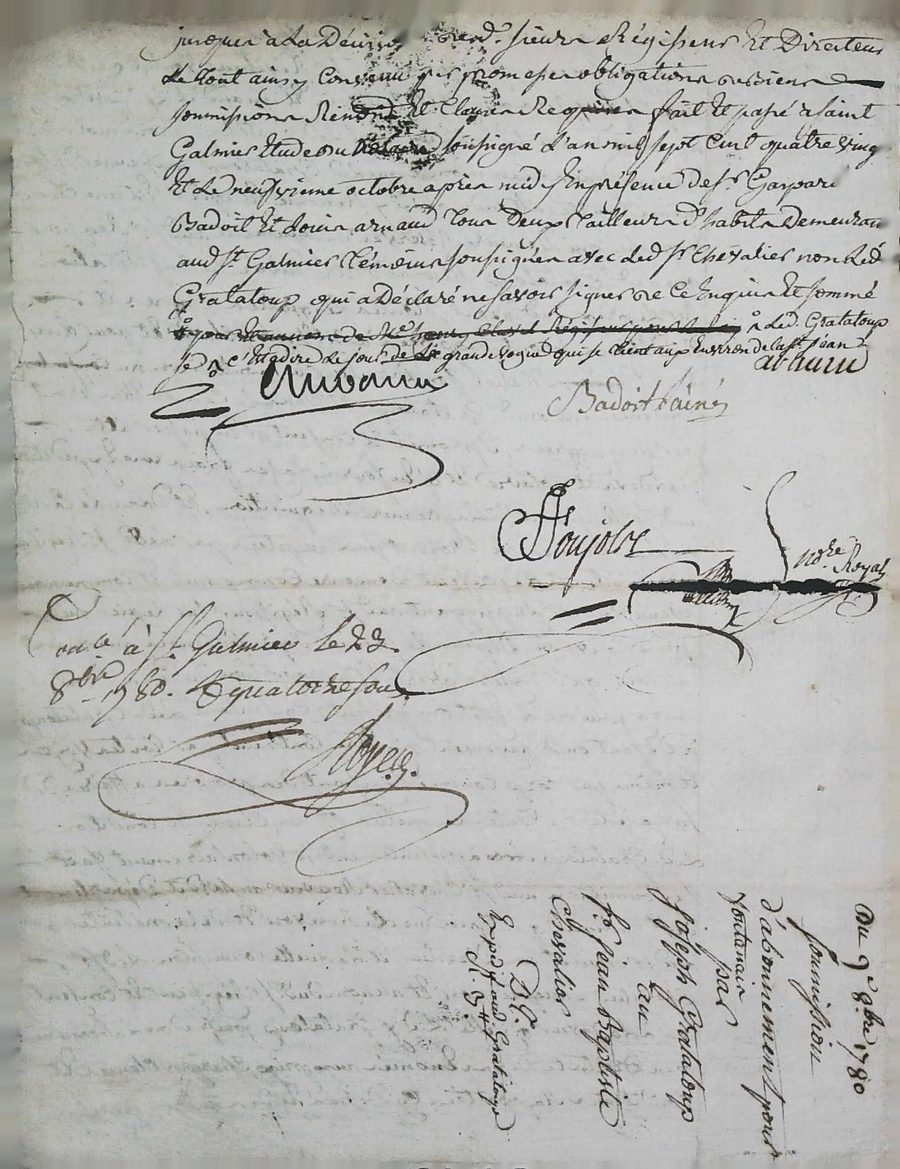 jusques a la Décision desd. sieurs Régisseurs Et Directeur
Le tout ainsy Convenu par promesses obligations de Biens
soumissions Renon.on Et Clauses Requises fait Et passé a saint
Galmier Etude du notaire soussigné L'an mil sept Cent quatre ving
Et Le neufvieme octobre apres midy En présence de sr. Gaspard
Badoit Et Louis arnaud tous Deux tailleurs D'habits Demeurant
aud St. Galmier témoins soussignés avec led sr. Chevalier non Led
Grataloup qui a Déclaré ne savoir signer de ce Enquis Et sommé
pour Clavel Régisseur led. Grataloup
C'Est a dire le jour de la grande vogue qui se tient aux Environ de la st. jean
arnaud
Badoit L'ainé
Poujols
no.re Royal
à St. Galmier le 23.
8bre 1780. R quatorze sous
Du 9e 8bre 1780
soumission
d'abonnement pour
par
joseph Grataloup
au
sr. jean Baptiste
Chevalier
D. G.
Exped. aud. Grataloup